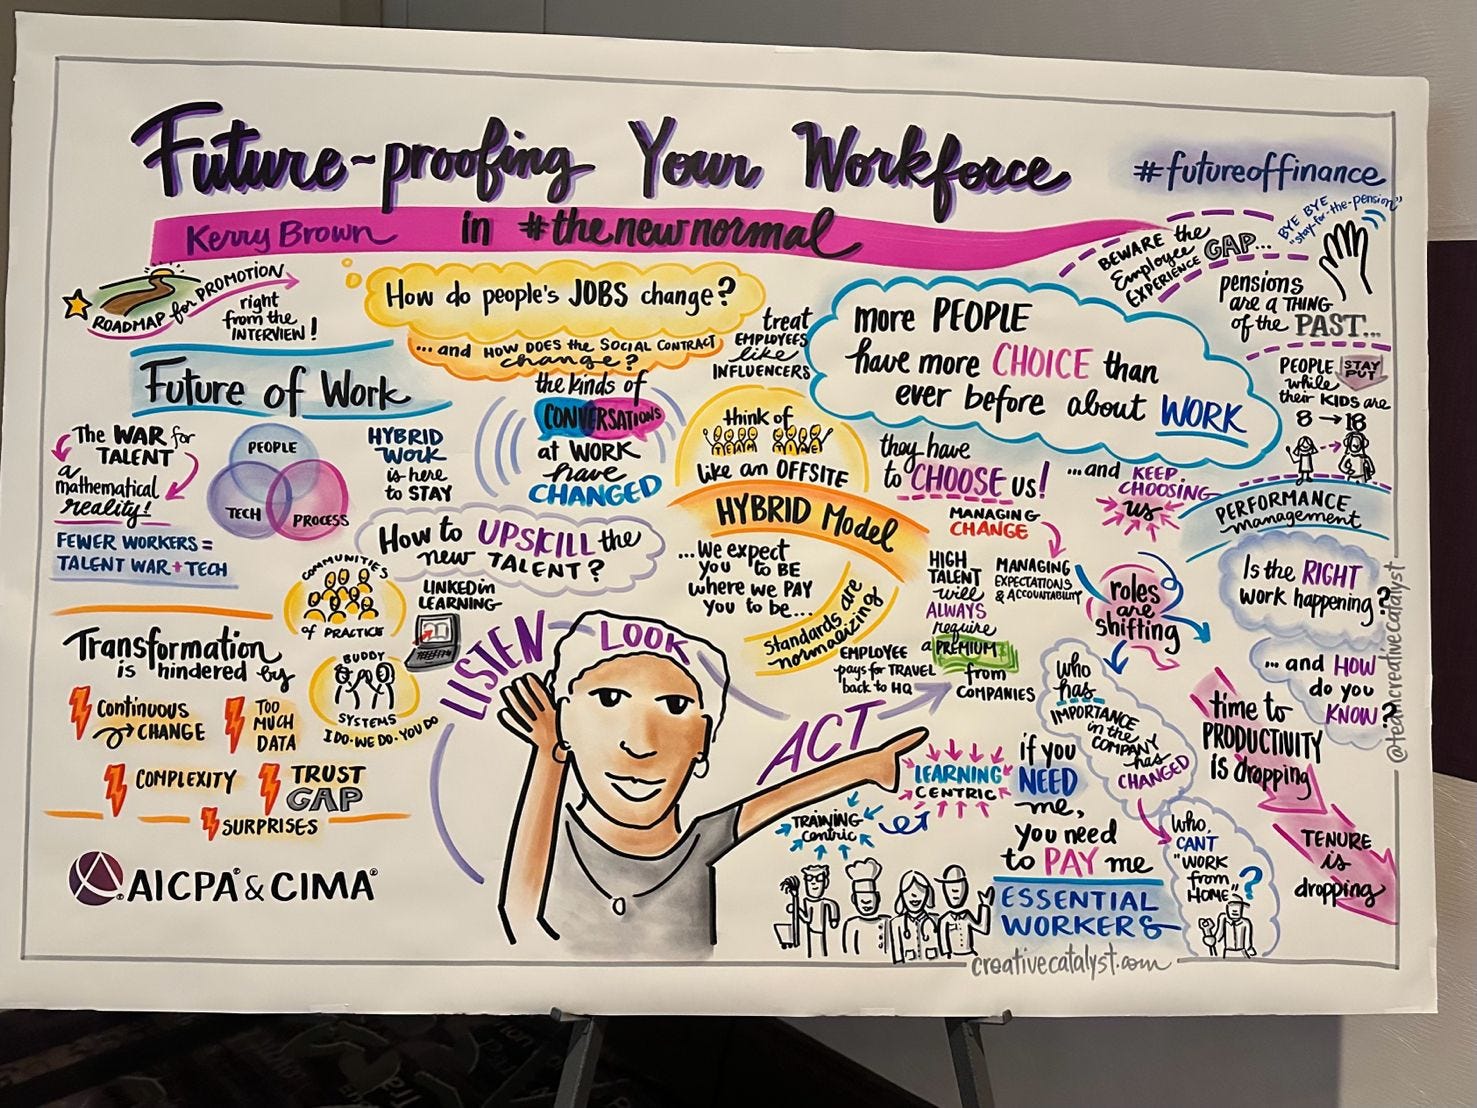 Future-proofing Your Workforce
#futureoffinance
Kerry Brown
in #thenewnormal
ROADMAP for PROMOTION
right
from the
INTERVIEW!
How do people's JOBS change?
... and HOW DOES the SOCIAL CONTRACT
change?
treat
EMPLOYEES
like
INFLUENCERS
more PEOPLE
have more CHOICE than
ever before about WORK
BEWARE the
Employee
EXPERIENCE GAP...
BYE BYE
"stay-for-the-pension"
pensions
are a THING
of the PAST...
PEOPLE STAY
PUT
while
their KIDS are
8 → 18
Future of Work
The WAR for
TALENT
a
mathematical
reality!
FEWER WORKERS =
TALENT WAR + TECH
PEOPLE
TECH
PROCESS
HYBRID
WORK
is here
to STAY
the kinds of
CONVERSATIONS
at WORK
have
CHANGED
think of
TEAM TIME
like an OFFSITE
HYBRID Model
...we expect
you to BE
where we PAY
you to be...
Standards are
normalizing
EMPLOYEE
pays for TRAVEL
back to HQ
they have
to CHOOSE us!
...and KEEP
CHOOSING
us
MANAGING
CHANGE
MANAGING
EXPECTATIONS
& ACCOUNTABILITY
HIGH
TALENT
will
ALWAYS
require
a PREMIUM
from
COMPANIES
roles
are
shifting
PERFORMANCE
management
Is the RIGHT
work happening?
... and HOW
do you
KNOW?
How to UPSKILL the
new TALENT?
COMMUNITIES
of PRACTICE
LINKEDin
LEARNING
BUDDY
SYSTEMS
I DO • WE DO • YOU DO
Transformation
is hindered by
Continuous
CHANGE
TOO
MUCH
DATA
COMPLEXITY
TRUST
GAP
SURPRISES
LISTEN
LOOK
ACT
LEARNING
CENTRIC
TRAINING
Centric
who
has
IMPORTANCE
in the
COMPANY
has
CHANGED
time to
PRODUCTIVITY
is dropping
TENURE
is
dropping
if you
NEED
me,
you need
to PAY me
ESSENTIAL
WORKERS
who
CAN'T
"WORK
from
HOME"?
AICPA® & CIMA®
creativecatalyst.com
@teamcreativecatalyst